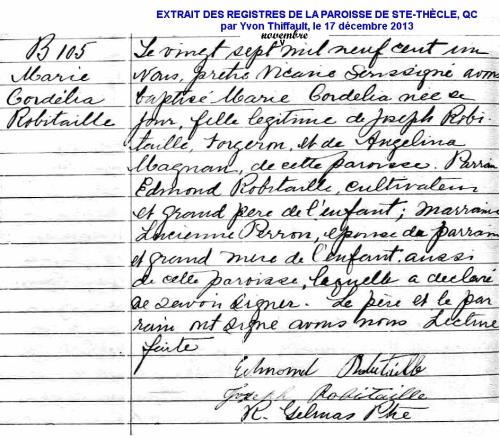 EXTRAIT DES REGISTRES DE LA PAROISSE DE STE-THÈCLE, QC
par Yvon Thiffault, le 17 décembre 2013
B 105
Marie
Cordélia
Robitaille
novembre
Le vingt sept mil neuf cent un
Nous, prêtre Vicaire soussigné avons
baptisé Marie Cordélia née ce
jour, fille légitime de Joseph Robi-
taille, forgeron, et de Angelina
Magnan, de cette paroisse. Parrain
Edmond Robitaille, cultivateur
et grand père de l'enfant; marraine
Lucienne Perron, épouse du parrain
et grand mère de l'enfant aussi
de cette paroisse, laquelle a déclaré
ne savoir signer. Le père et le par
rain ont signé avons nous Lecture
faite
Edmond Robitaille
Joseph Robitaille
R. Gelinas Ptre